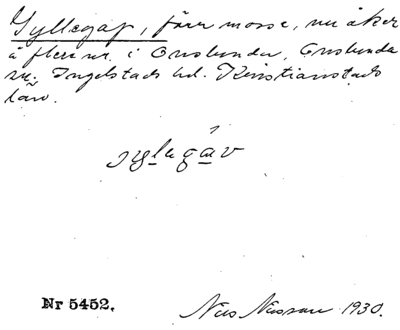 Gyllegap, förr mosse, nu åker
å flera nr. i Onslunda, Onslunda
sn. Ingelstads hd. Kristianstads
län.
Nr 5452.
Nils Nilsson 1930.